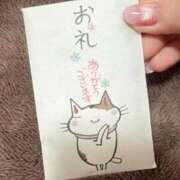 お礼
ありがとう
ございます